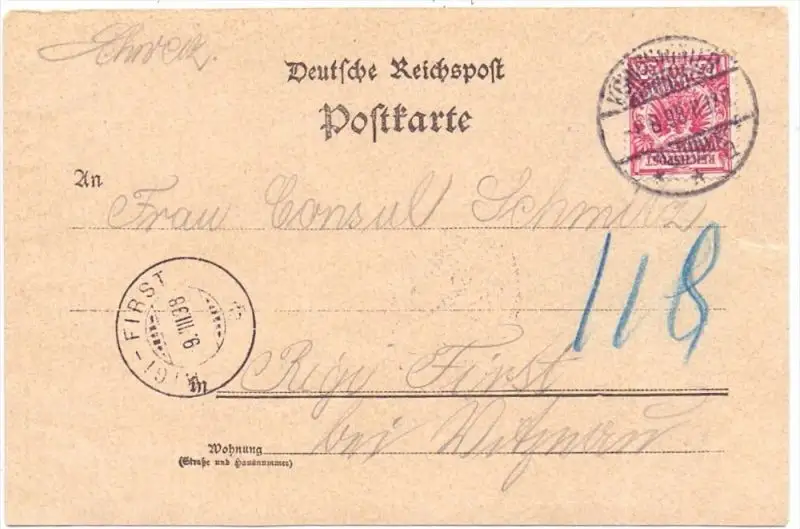 Schweiz.
Deutsche Reichspost
Postkarte
REICHSPOST
An
Frau Consul Schmitz
118
RIGI-FIRST
9. III 38
in
Rigi First
bei Vitznau
Wohnung
(Straße und Hausnummer)